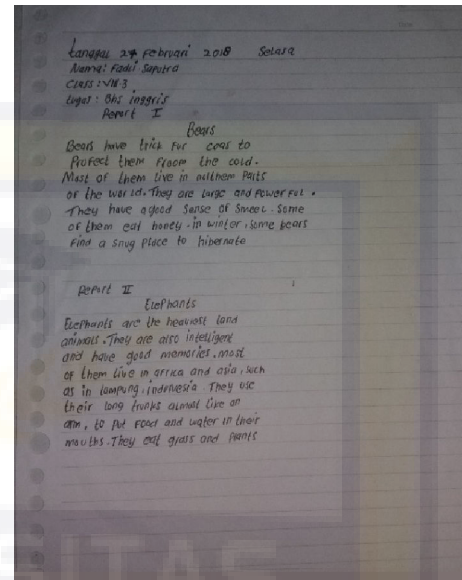 tanggal 27 Februari 2018 Selasa
Nama: Fadli Saputra
Class: VIII.3
tugas: Bhs inggris
Report I
Bears
Bears have thick Fur coat to
Protect them Froom the cold.
Most of them live in nothem Parts
of the world. They are large and Powerful.
They have a good Sense of Smeel. Some
of them eat honey. in winter, some bears
Find a snug Place to hibernate
Report II
Elephants
Elephants are the heaviest land
animals. They are also intelligent
and have good memories. most
of them live in africa and asia, such
as in lampung, indonesia. They use
their long trunks almost like an
arm, to Put Food and water in their
mouths. They eat grass and Plants